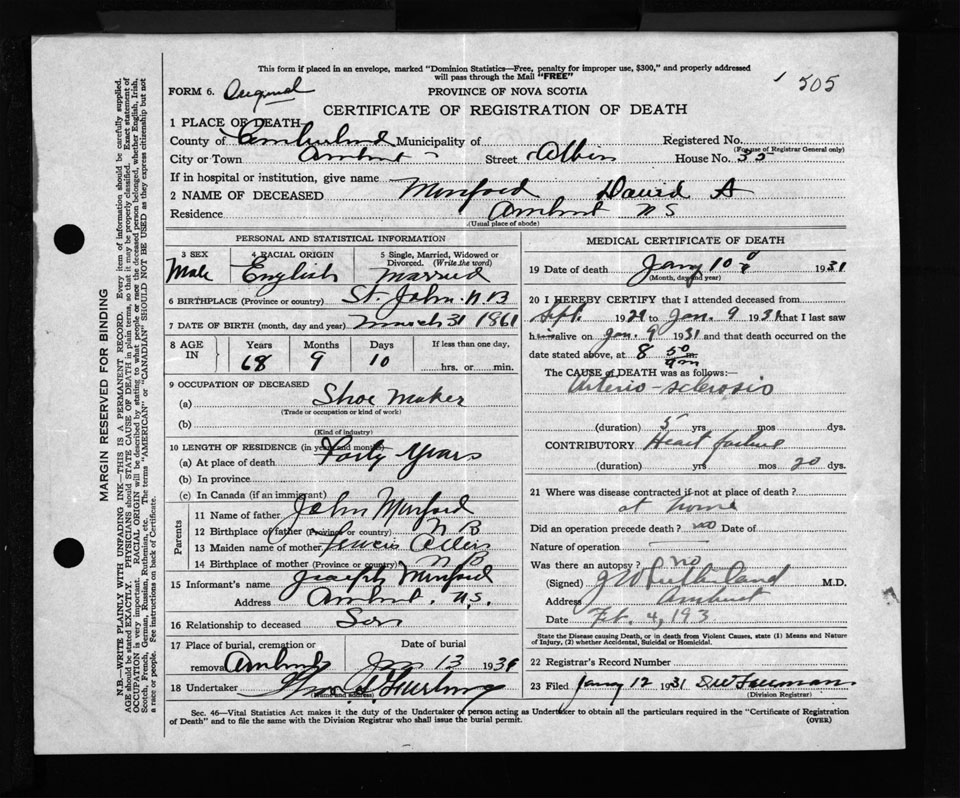 This form if placed in an envelope, marked "Dominion Statistics—Free, penalty for improper use, $300," and properly addressed
will pass through the Mail "FREE"
1 505
FORM 6. Original PROVINCE OF NOVA SCOTIA
CERTIFICATE OF REGISTRATION OF DEATH
1 PLACE OF DEATH
County of Cumberland Municipality of Registered No.
(For use of Registrar General only)
City or Town Amherst Street Albion House No. 35
If in hospital or institution, give name
2 NAME OF DECEASED Minford David A
Residence Amherst NS
(Usual place of abode)
PERSONAL AND STATISTICAL INFORMATION
3 SEX 4 RACIAL ORIGIN 5 Single, Married, Widowed or
Divorced. (Write the word)
Male English Married
6 BIRTHPLACE (Province or country) St. John N B
7 DATE OF BIRTH (month, day and year) March 31 1861
8 AGE IN Years Months Days If less than one day,
68 9 10 hrs. or min.
9 OCCUPATION OF DECEASED
(a) Shoe Maker
(Trade or occupation or kind of work)
(b)
(Kind of industry)
10 LENGTH OF RESIDENCE (in years and months)
(a) At place of death Forty Years
(b) In province
(c) In Canada (if an immigrant)
Parents
11 Name of father John Minford
12 Birthplace of father (Province or country) N B
13 Maiden name of mother
14 Birthplace of mother (Province or country) N B
15 Informant's name Joseph Minford
Address Amherst. N.S.
16 Relationship to deceased Son
17 Place of burial, cremation or Date of burial
removal Amherst Jan 13 193
18 Undertaker
(Name and address)
MEDICAL CERTIFICATE OF DEATH
19 Date of death Jany 10 1931
(Month, day and year)
20 I HEREBY CERTIFY that I attended deceased from
Sept. 1929 to Jan. 9 1931 that I last saw
him alive on Jan. 9 1931 and that death occurred on the
date stated above, at 8 50 m.
The CAUSE of DEATH was as follows:
Arterio-sclerosis
(duration) 5 yrs. mos dys.
CONTRIBUTORY Heart failure
(duration) yrs mos 20 dys.
21 Where was disease contracted if not at place of death?
at home
Did an operation precede death? no Date of
Nature of operation
Was there an autopsy? no
(Signed) J W Sutherland M.D.
Address Amherst
Date Feb. 4, 193
State the Disease causing Death, or in death from Violent Causes, state (1) Means and Nature
of Injury, (2) whether Accidental, Suicidal or Homicidal.
22 Registrar's Record Number
23 Filed Jany 12 1931
(Division Registrar)
Sec. 46—Vital Statistics Act makes it the duty of the Undertaker or person acting as Undertaker to obtain all the particulars required in the "Certificate of Registration
of Death" and to file the same with the Division Registrar who shall issue the burial permit. (OVER)
MARGIN RESERVED FOR BINDING
N.B.—WRITE PLAINLY WITH UNFADING INK—THIS IS A PERMANENT RECORD. Every item of information should be carefully supplied.
AGE should be stated EXACTLY. PHYSICIANS should STATE CAUSE OF DEATH in plain terms, so that it may be properly classified. Exact statement of
OCCUPATION is very important. RACIAL ORIGIN will be described by stating to what people or race the deceased person belonged, whether English, Irish,
Scotch, French, German, Russian, Ruthenian, etc. The terms "AMERICAN" or "CANADIAN" SHOULD NOT BE USED as they express citizenship but not
a race or people. See instructions on back of Certificate.